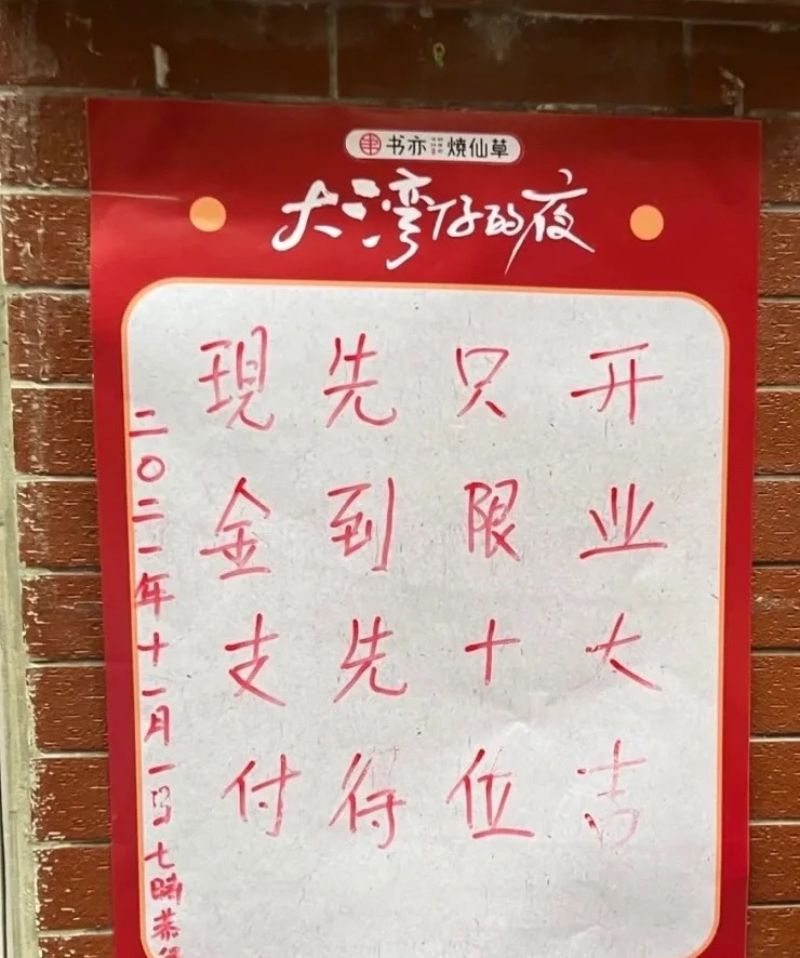 书亦烧仙草
大湾仔的夜
开业大吉
只限十位
先到先得
現金支付
二〇二一年十一月一号七時恭